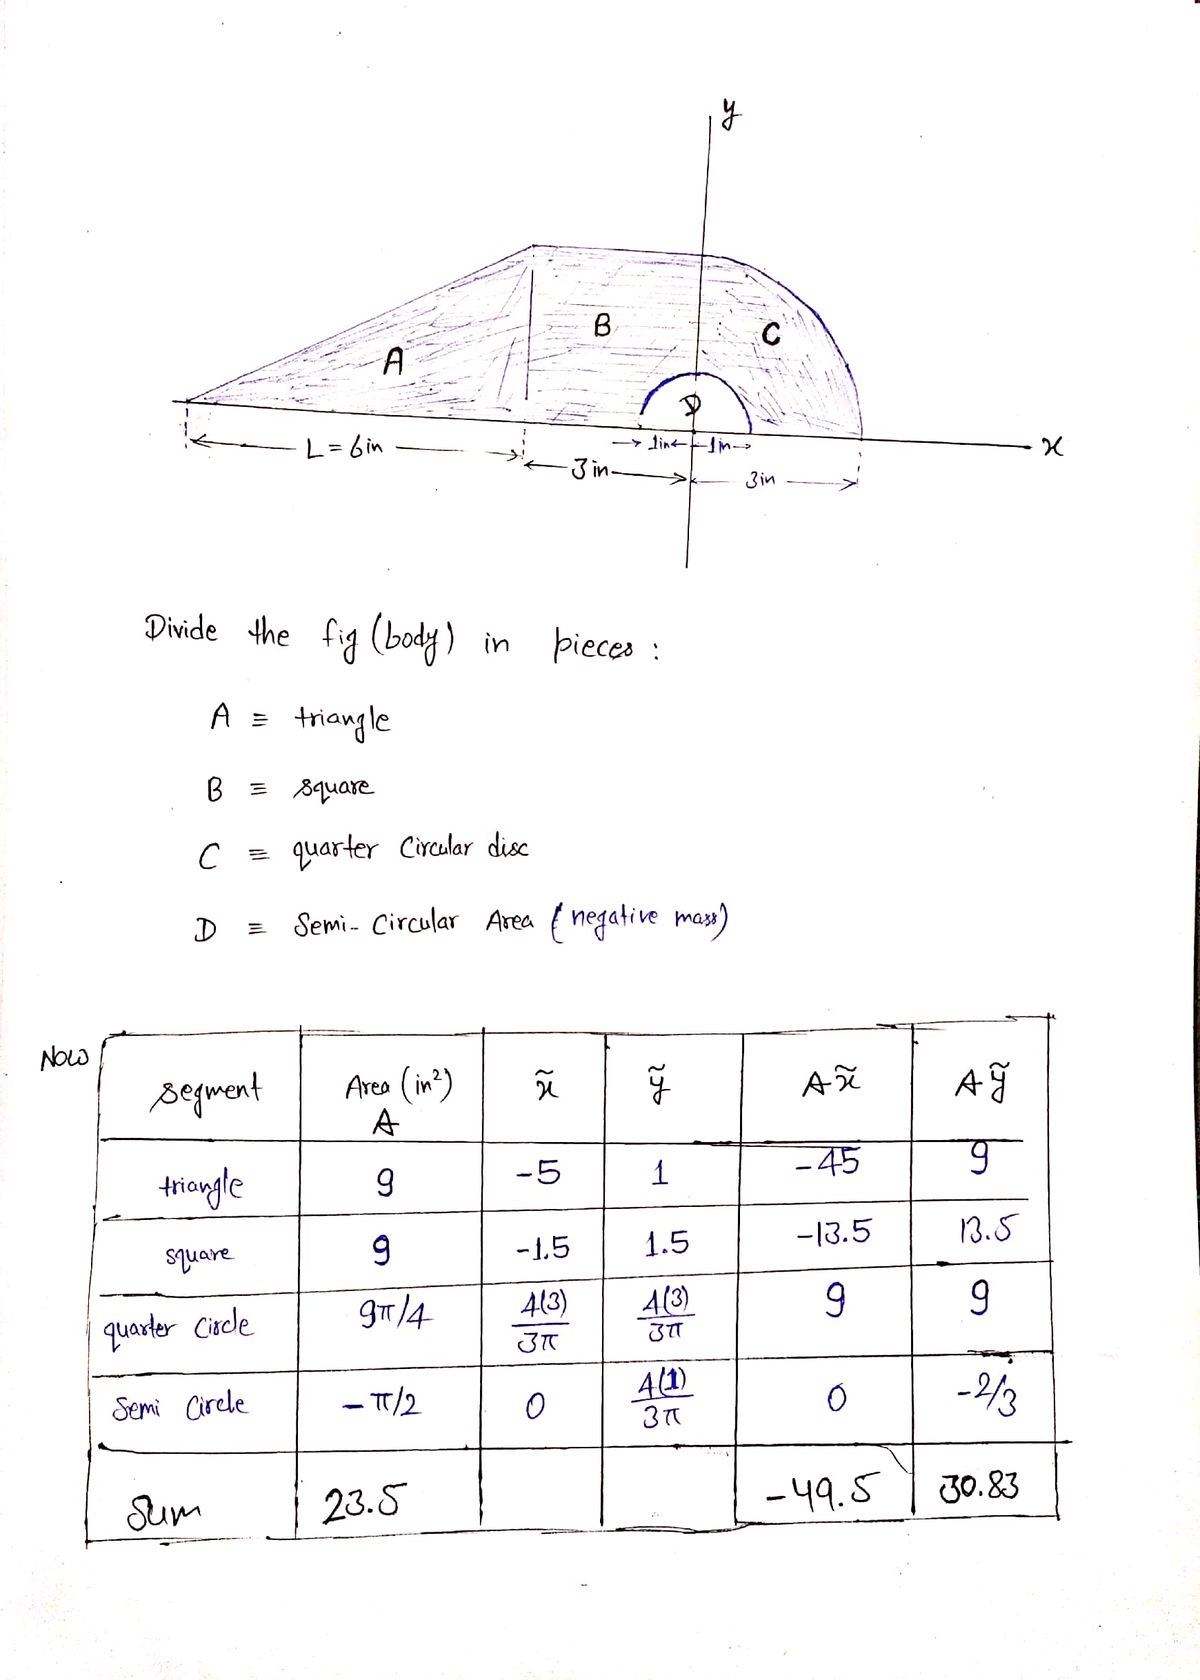 y
B
C
A
D
x
L = 6in
1in
1in
3in
3in
Divide the fig (body) in pieces :
A ≡ triangle
B ≡ square
C ≡ quarter Circular disc
D ≡ Semi-Circular Area (negative mass)
Now
segment Area (in²) A x̃ ỹ Ax̃ Aỹ
triangle 9 -5 1 -45 9
square 9 -1.5 1.5 -13.5 13.5
quarter Circle 9π/4 4(3)/3π 4(3)/3π 9 9
Semi Circle -π/2 0 4(1)/3π 0 -2/3
Sum 23.5 -49.5 30.83